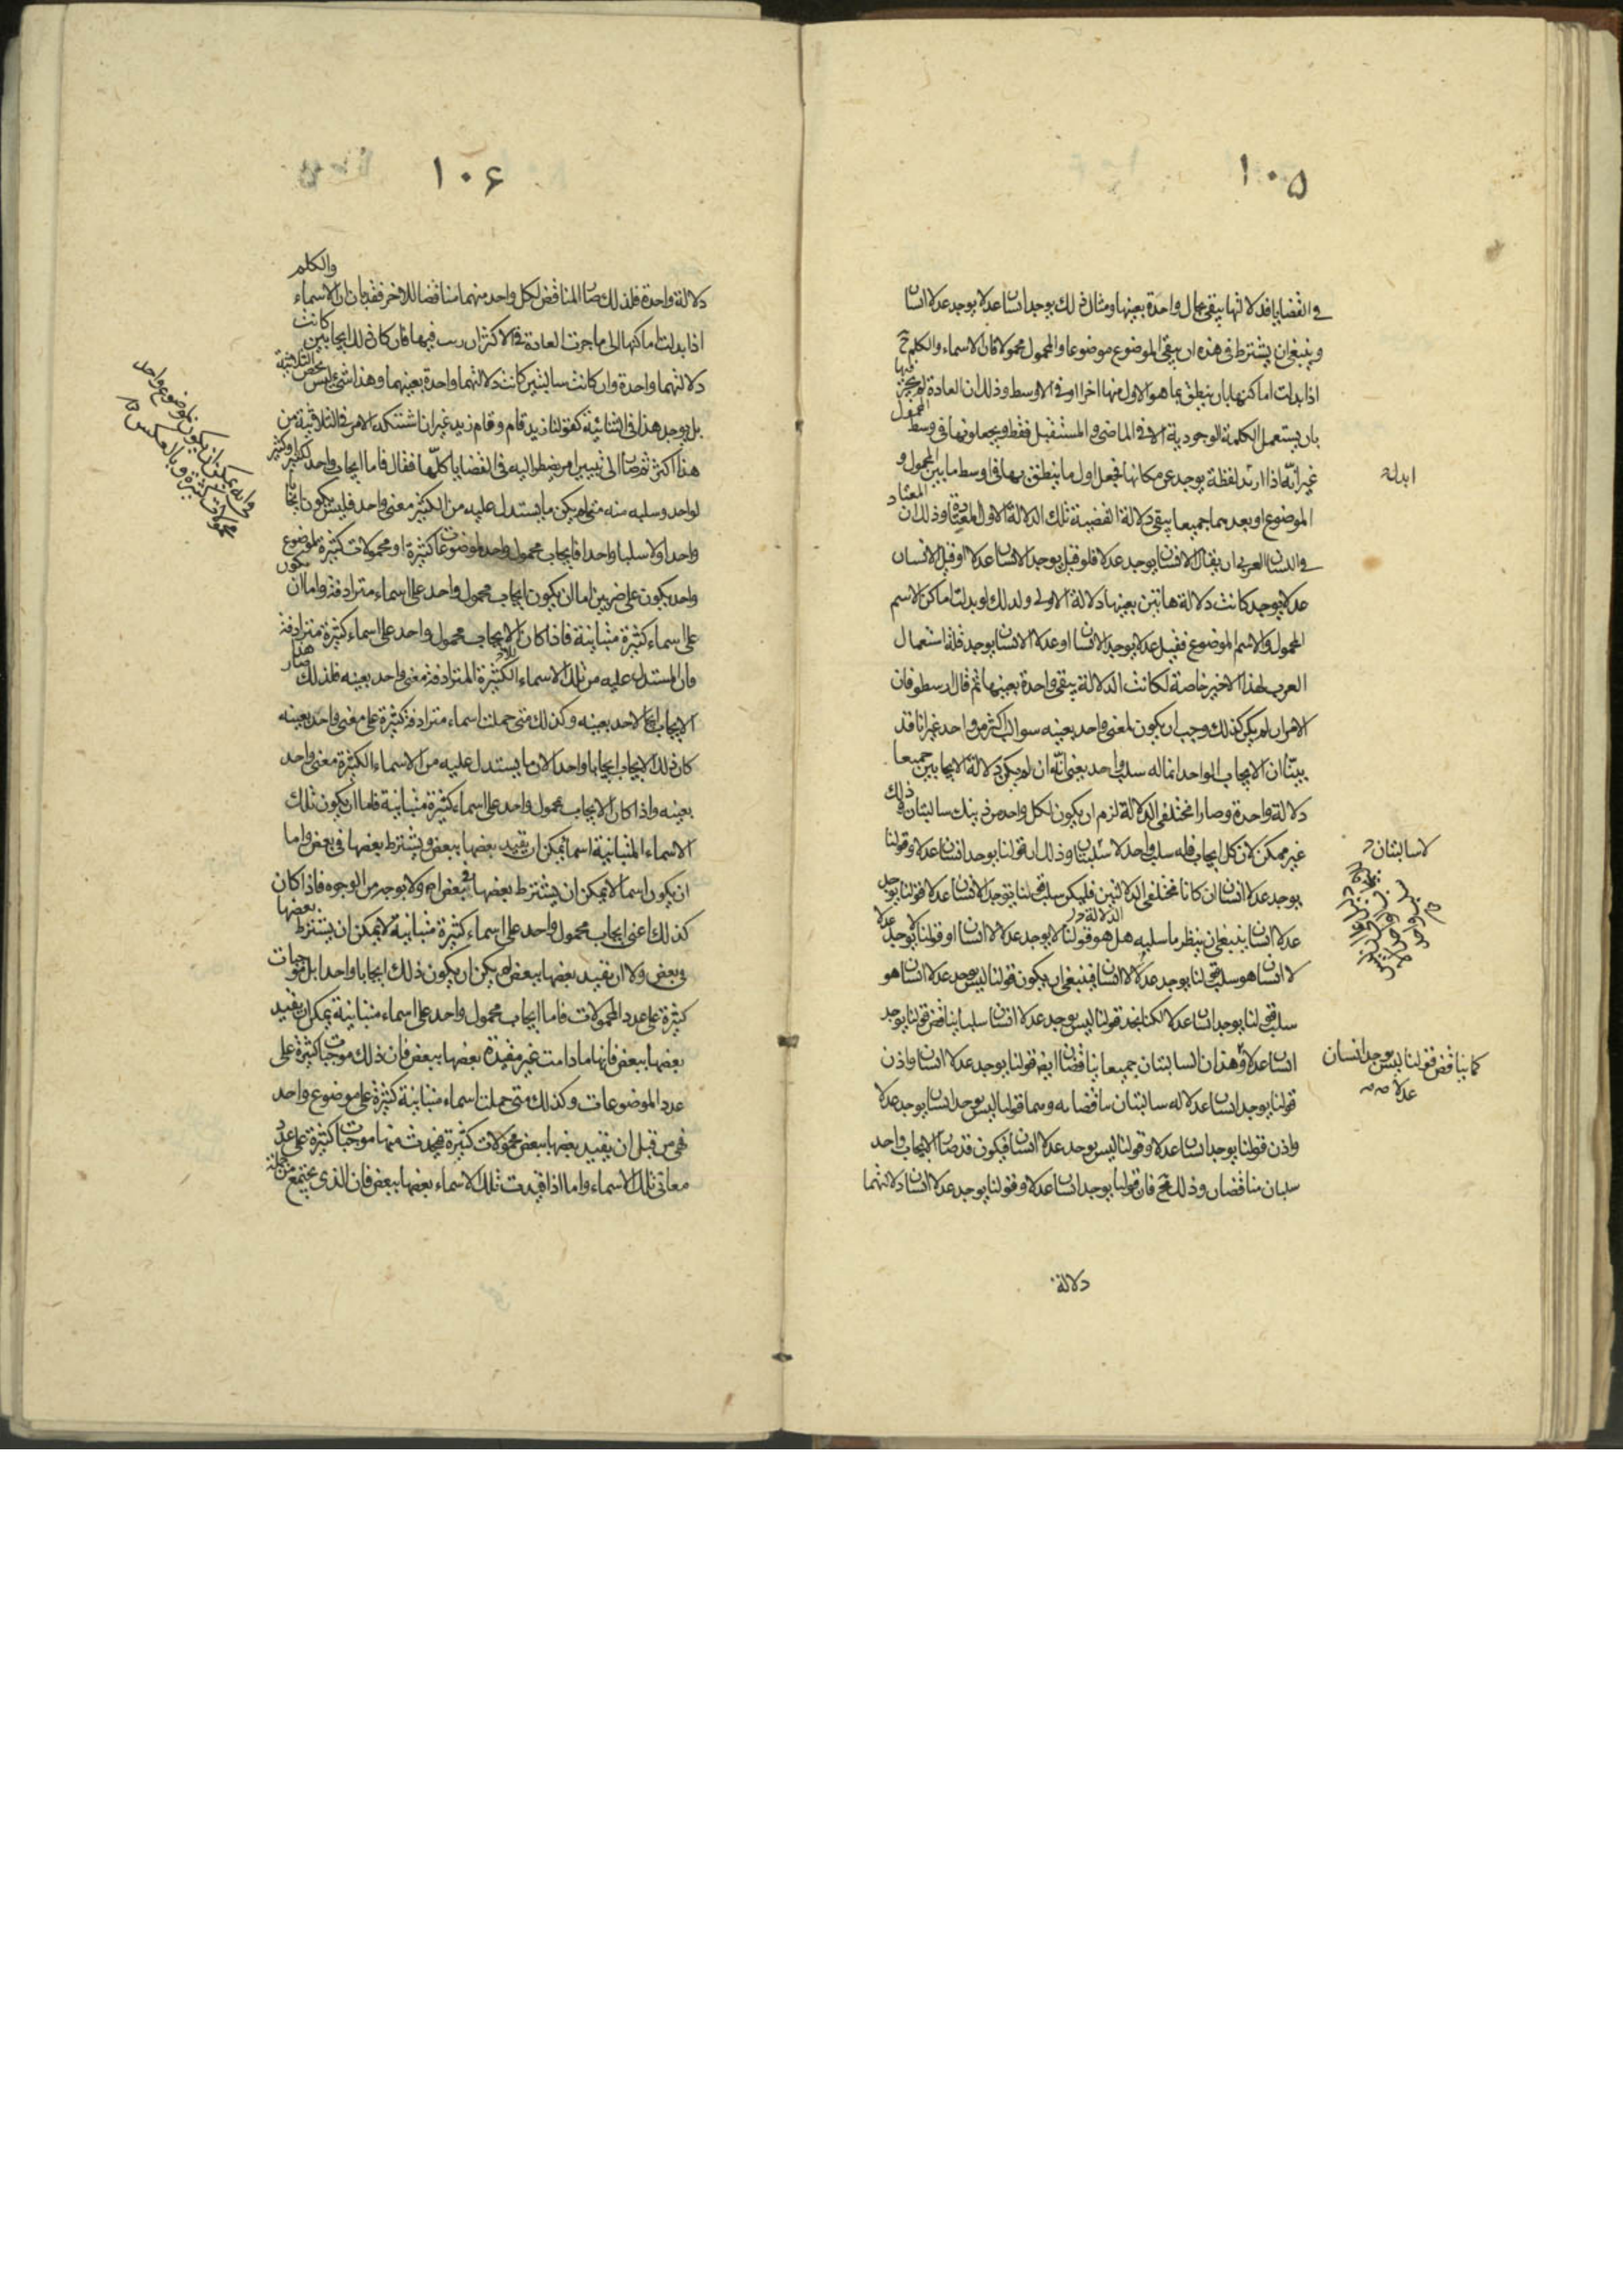 ١٠٥
في القضايا فدلالتها يبقى بحال واحدة بعينها ومثال ذلك يوجد انسانا عدلا يوجد عدلا انسانا
وينبغي ان يشترط في هذه ان يبقى الموضوع موضوعا والمحمول محمولا فان الاسماء والكلم
اذا بدلت اماكنها بان ينطق بما هو الاول منها اخرا او في الاوسط وذلك ان العادة لم تجر فيها
بان يستعمل الكلمة الوجودية الا في الماضي والمستقبل فقط ويجعلونها في وسط المحمول
غير انه اذا ابدل لفظة يوجد عن مكانها فجعل اول ما ينطق بها في اوسط ما بين المحمول و
ابدلة
الموضوع او بعدهما جميعا يبقى دلالة القضية تلك الدلالة الاول المعتاد وذلك ان
في اللسان العربي ان يقال الانسان يوجد عدلا فلو قيل يوجد الانسان عدلا او قيل الانسان
عدلا يوجد كانت دلالة هاتين بعينها دلالة الاولى ولذلك لو بدلت اماكن الاسم
المحمول والاسم الموضوع فقيل عدلا يوجد الانسان او عدلا الانسان يوجد فلة استعمال
العرب لهذا الاخير خاصة لكانت الدلالة يبقى واحدة بعينها ثم قال ارسطو فان
الامر ان لم يكن كذلك وجب ان يكون لمعنى واحد بعينه سوالب اكثر من واحد غير انا قد
بينا ان الايجاب الواحد انما له سلب واحد يعني انه ان لم يكن دلالة الايجابين جميعا
دلالة واحدة وصارا مختلفي الدلالة لزم ان يكون لكل واحد من ذينك سالبتان وذلك
غير ممكن لان كل ايجاب فله سلب واحد لا سلبتان وذلك ان قولنا يوجد انسان عدلا وقولنا
لا سالبتان
يوجد عدلا انسان ان كانا مختلفي الدلالتين فليكن سلب قولنا يوجد الانسان عدلا قولنا يوجد
عدلا انسانا ينبغي ان ينظر ما سلبه هل هو قولنا لا يوجد عدلا لا انسانا او قولنا لا يوجد عدلا
لا انسانا هو سلب قولنا يوجد عدلا لا انسانا فينبغي ان يكون قولنا ليس يوجد عدلا انسانا هو
سلب قولنا يوجد انسانا عدلا لكنا نجد قولنا ليس يوجد عدلا انسانا سلبا يناقض قولنا يوجد
انسانا عدلا وهذان السالبتان جميعا يناقضان ايضا قولنا يوجد عدلا انسانا واذن
كما يناقض قولنا ليس يوجد انسان
عدلا
قولنا يوجد انسانا عدلا له سالبتان قولنا ليس يوجد انسانا يوجد عدلا
واذن قولنا يوجد انسانا عدلا وقولنا ليس يوجد عدلا انسانا فيكون قد صار الايجاب واحد
سلبان مناقضان وذلك مح فان قولنا يوجد انسانا عدلا وقولنا يوجد عدلا انسانا دلالتهما
دلالة
١٠٦
دلالة واحدة فلذلك صار المناقض لكل واحد منهما مناقضا للاخر فقد بان ان الاسماء والكلم
اذا بدلت اماكنها الى ما جرت العادة في الاكثر ان رتب فيها فان كان ذلك ايجابين كانت
دلالتهما واحدة وان كانت سالبتين كانت دلالتهما واحدة بعينهما وهذا شيء ليس يخص الثلاثية
بل يوجد هذا في الثنائية كقولنا زيد قام وقام زيد غير انا الامر في الثلاثية من
هذا اكثر ثم صار الى تبيين امر يضطر اليه في القضايا كلها فقال فاما ايجاب واحد لكثير او كثير
لواحد وسلبه منه متى لم يكن ما يستدل عليه من الكثير معنى واحد فليس يكون ايجابا
واحدا ولا سلبا واحدا فايجاب محمول واحد لموضوعات كثيرة او محمولات كثيرة لموضوع
واحد يكون على ضربين اما ان يكون ايجاب محمول واحد على اسماء مترادفة واما ان يكون
على اسماء كثيرة متباينة فاذا كان الايجاب محمول واحد على اسماء كثيرة مترادفة
فان المستدل عليه من تلك الاسماء الكثيرة المترادفة معنى واحد بعينه فلذلك صار هذا
الايجاب ايجابا لاحد بعينه وكذلك متى حملت اسماء مترادفة كثيرة على معنى واحد بعينه
كان ذلك الايجاب ايجابا واحدا لان ما يستدل عليه من الاسماء الكثيرة معنى واحد
بعينه واذا كان الايجاب محمول واحد على اسماء كثيرة متباينة فاما ان يكون تلك
الاسماء المتباينة اسما يمكن ان يقيد بعضها ببعض ويشترط بعضها في بعض واما
ان يكون اسما لا يمكن ان يشترط بعضها في بعض اصلا ولا بوجه من الوجوه فاذا كان
كذلك اعني ايجاب محمول واحد على اسماء كثيرة متباينة لا يمكن ان يشترط بعضها
في بعض ولا ان يقيد بعضها ببعض لم يكن ان يكون ذلك ايجابا واحدا بل موجبات
كثيرة على عدد المحمولات فاما ايجاب محمول واحد على اسماء متباينة يمكن ان يقيد
بعضها ببعض فانها ما دامت غير مقيدة بعضها ببعض فان ذلك موجبات كثيرة على
عدد الموضوعات وكذلك متى حملت اسماء متباينة كثيرة على موضوع واحد
فهي من قبل ان يقيد بعضها ببعض محمولات كثيرة فيحدث منها موجبات كثيرة على عدد
معاني تلك الاسماء واما اذا قيدت تلك الاسماء بعضها ببعض فان الذي يجتمع من جملة